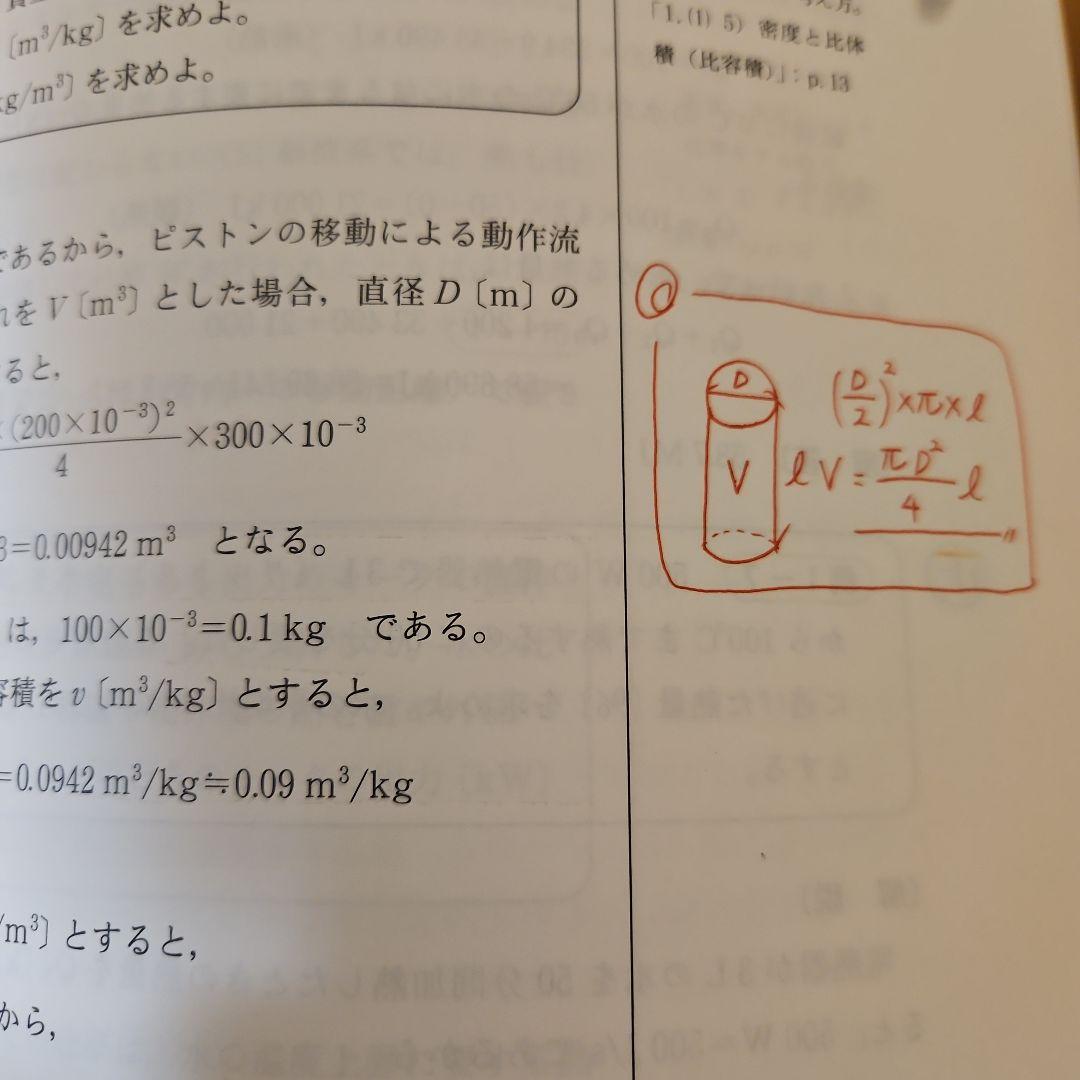 〔m³/kg〕を求めよ。
kg/m³〕を求めよ。
であるから，ピストンの移動による動作流
れをV〔m³〕とした場合，直径D〔m〕の
ると，
×(200×10⁻³)²/4 ×300×10⁻³
3=0.00942 m³ となる。
は，100×10⁻³=0.1 kg である。
容積をv〔m³/kg〕とすると，
=0.0942 m³/kg≒0.09 m³/kg
/m³〕とすると，
から，
「1.(1) 5) 密度と比体
積（比容積）」：p.13
D
(D/2)²×π×l
V l V=πD²/4 l